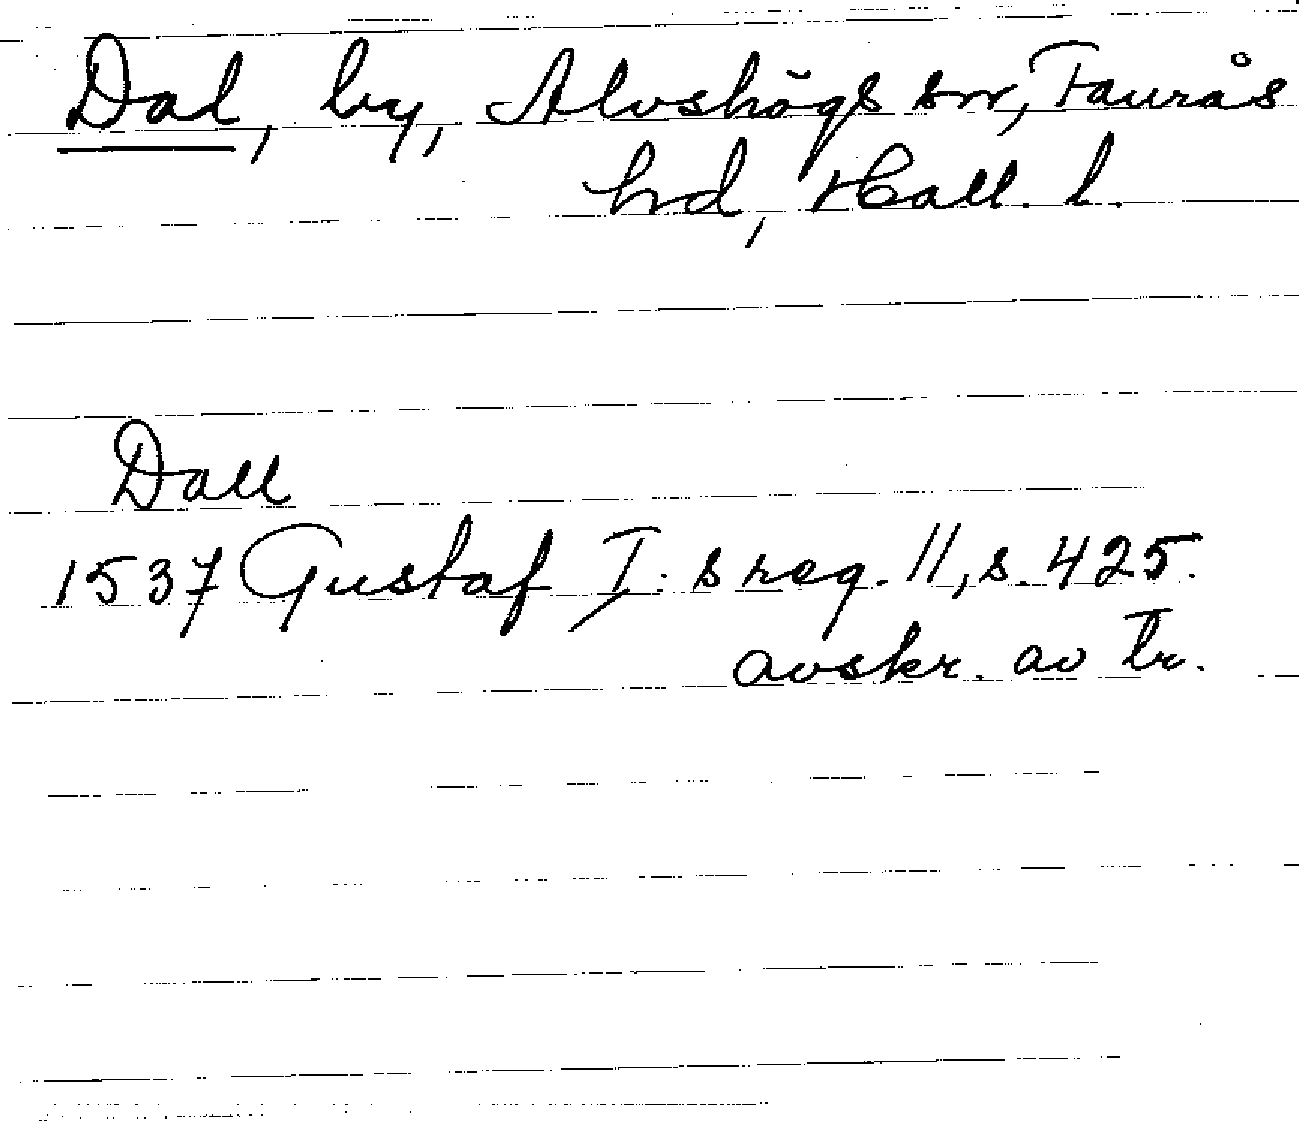 Dal, by, Alvshögs sn, Faurås
hd, Hall. l.
Dall
1537 Gustaf I. s reg. 11, s. 425.
avskr. av Tr.